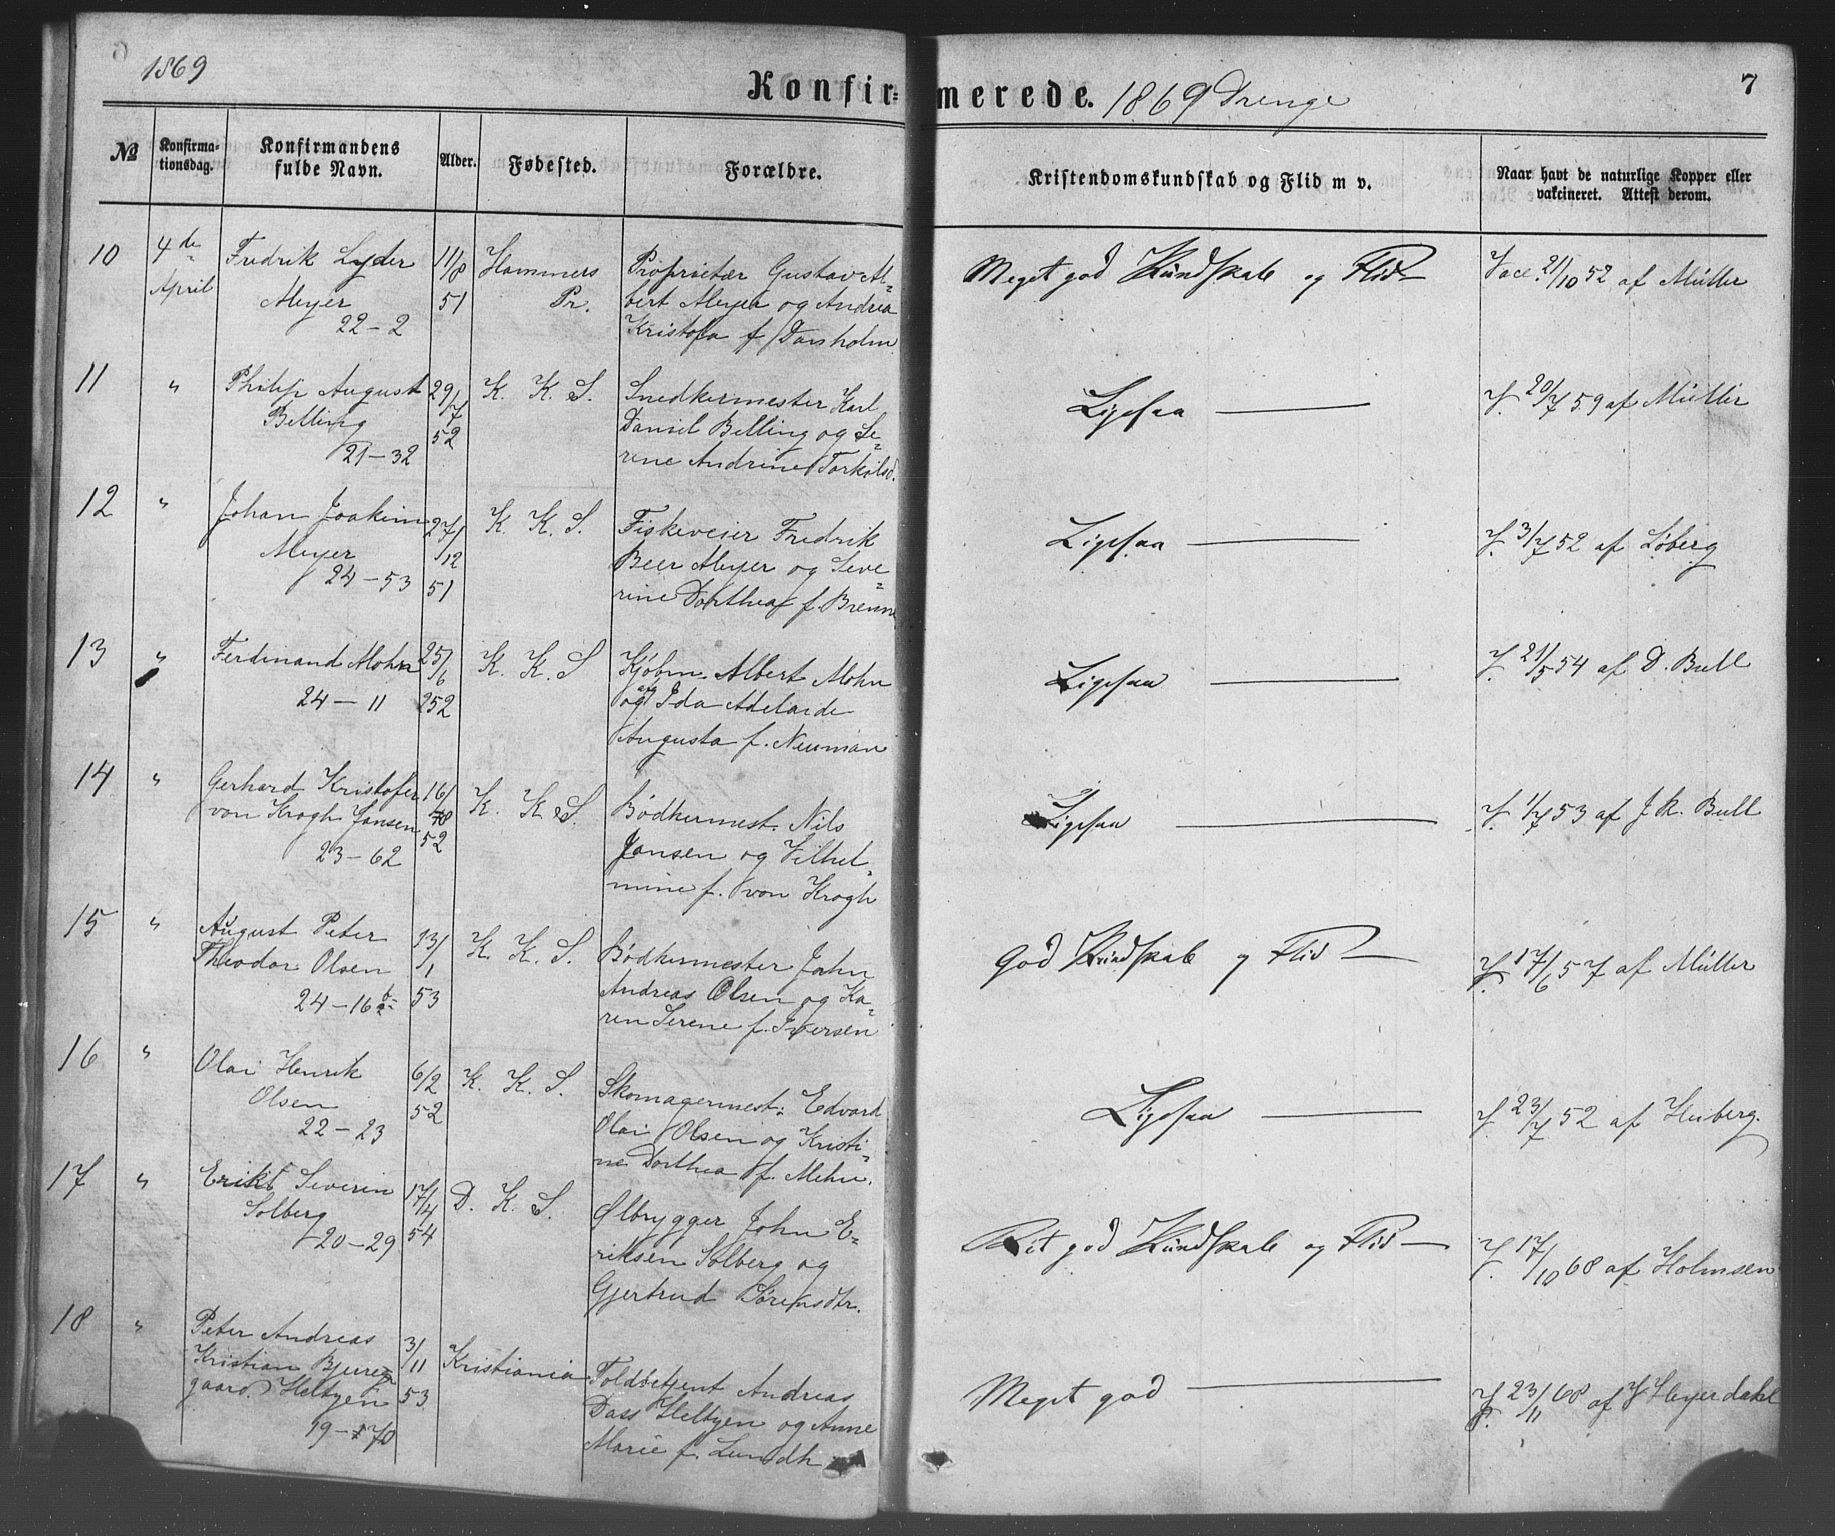 1869
Konfirmerede. 1869 Drenge
7
No
Konfirmationsdag.
Konfirmandens fulde Navn.
Alder.
Fødested.
Forældre.
Kristendomskundskab og Flid m v.
Naar havt de naturlige Kopper eller vakcineret. Attest derom.
10
4de April
Fredrik Lyder
Meyer
22-2
11/8
51
Hammers
Pr.
Proprietær Gustav Al-
bert Meyer og Andrea
Kristofa f Darsholm
Meget god Kundskab og Flid
Vacc. 21/10 52 af Müller
11
"
Philip August
Belling
21-32
29/7
52
K. K. S.
Snedkermester Karl
Daniel Belling og Se-
rene Andrine Torkilsd.
Ligesaa
V. 20/7 59 af Müller
12
"
Johan Joakim
Meyer
24-53
27/12
51
K. K. S.
Fiskeveier Fredrik
Beer Meyer og Seve-
rine Dorthea f.
Ligesaa
V. 3/7 52 af Løberg
13
"
Ferdinand Mohn
24-11
25/6
252
K. K. S
Kjøbm. Albert Mohn
og Ida Adelaide
Augusta f. Neuman
Ligesaa
V. 21/5 54 af D. Bull
14
"
Gerhard Kristofer
von Krogh Jansen
23-62
16/
52
K. K. S.
Bødkermest. Nils
Jansen og Vilhel-
mine f. von Krogh
Ligesaa
V. 1/7 53 af J K. Bull
15
"
August Peter
Theodor Olsen
24-16b
13/1
53
K. K. S.
Bødkermester John
Andreas Olsen og Ka-
ren Serene f. Iversen
God Kundskab og Flid
V. 17/6 57 af Müller
16
"
Olai Henrik
Olsen
22-23
6/2
52
K. K. S.
Skomagermest: Edvard
Olai Olsen og Kristi-
ne Dorthea f. Mehn.
Ligesaa
V. 23/7 52 af Heiberg.
17
"
Erik Severin
Solberg
20-29
17/4
54
D. K. S.
Ølbrygger John E-
riksen Solberg og
Gjertrud Sørensdtr.
Ret god Kundskab og Flid
V. 17/10 68 af Holmsen
18
"
Peter Andreas
Kristian Bjerre-
gaard Heltzen
19-170
3/11
53
Kristiania
Toldbetjent Andreas
Dass Heltzen og Anne
Marie f. Lundh
Meget god
V. 23/11 68 af Heyerdahl